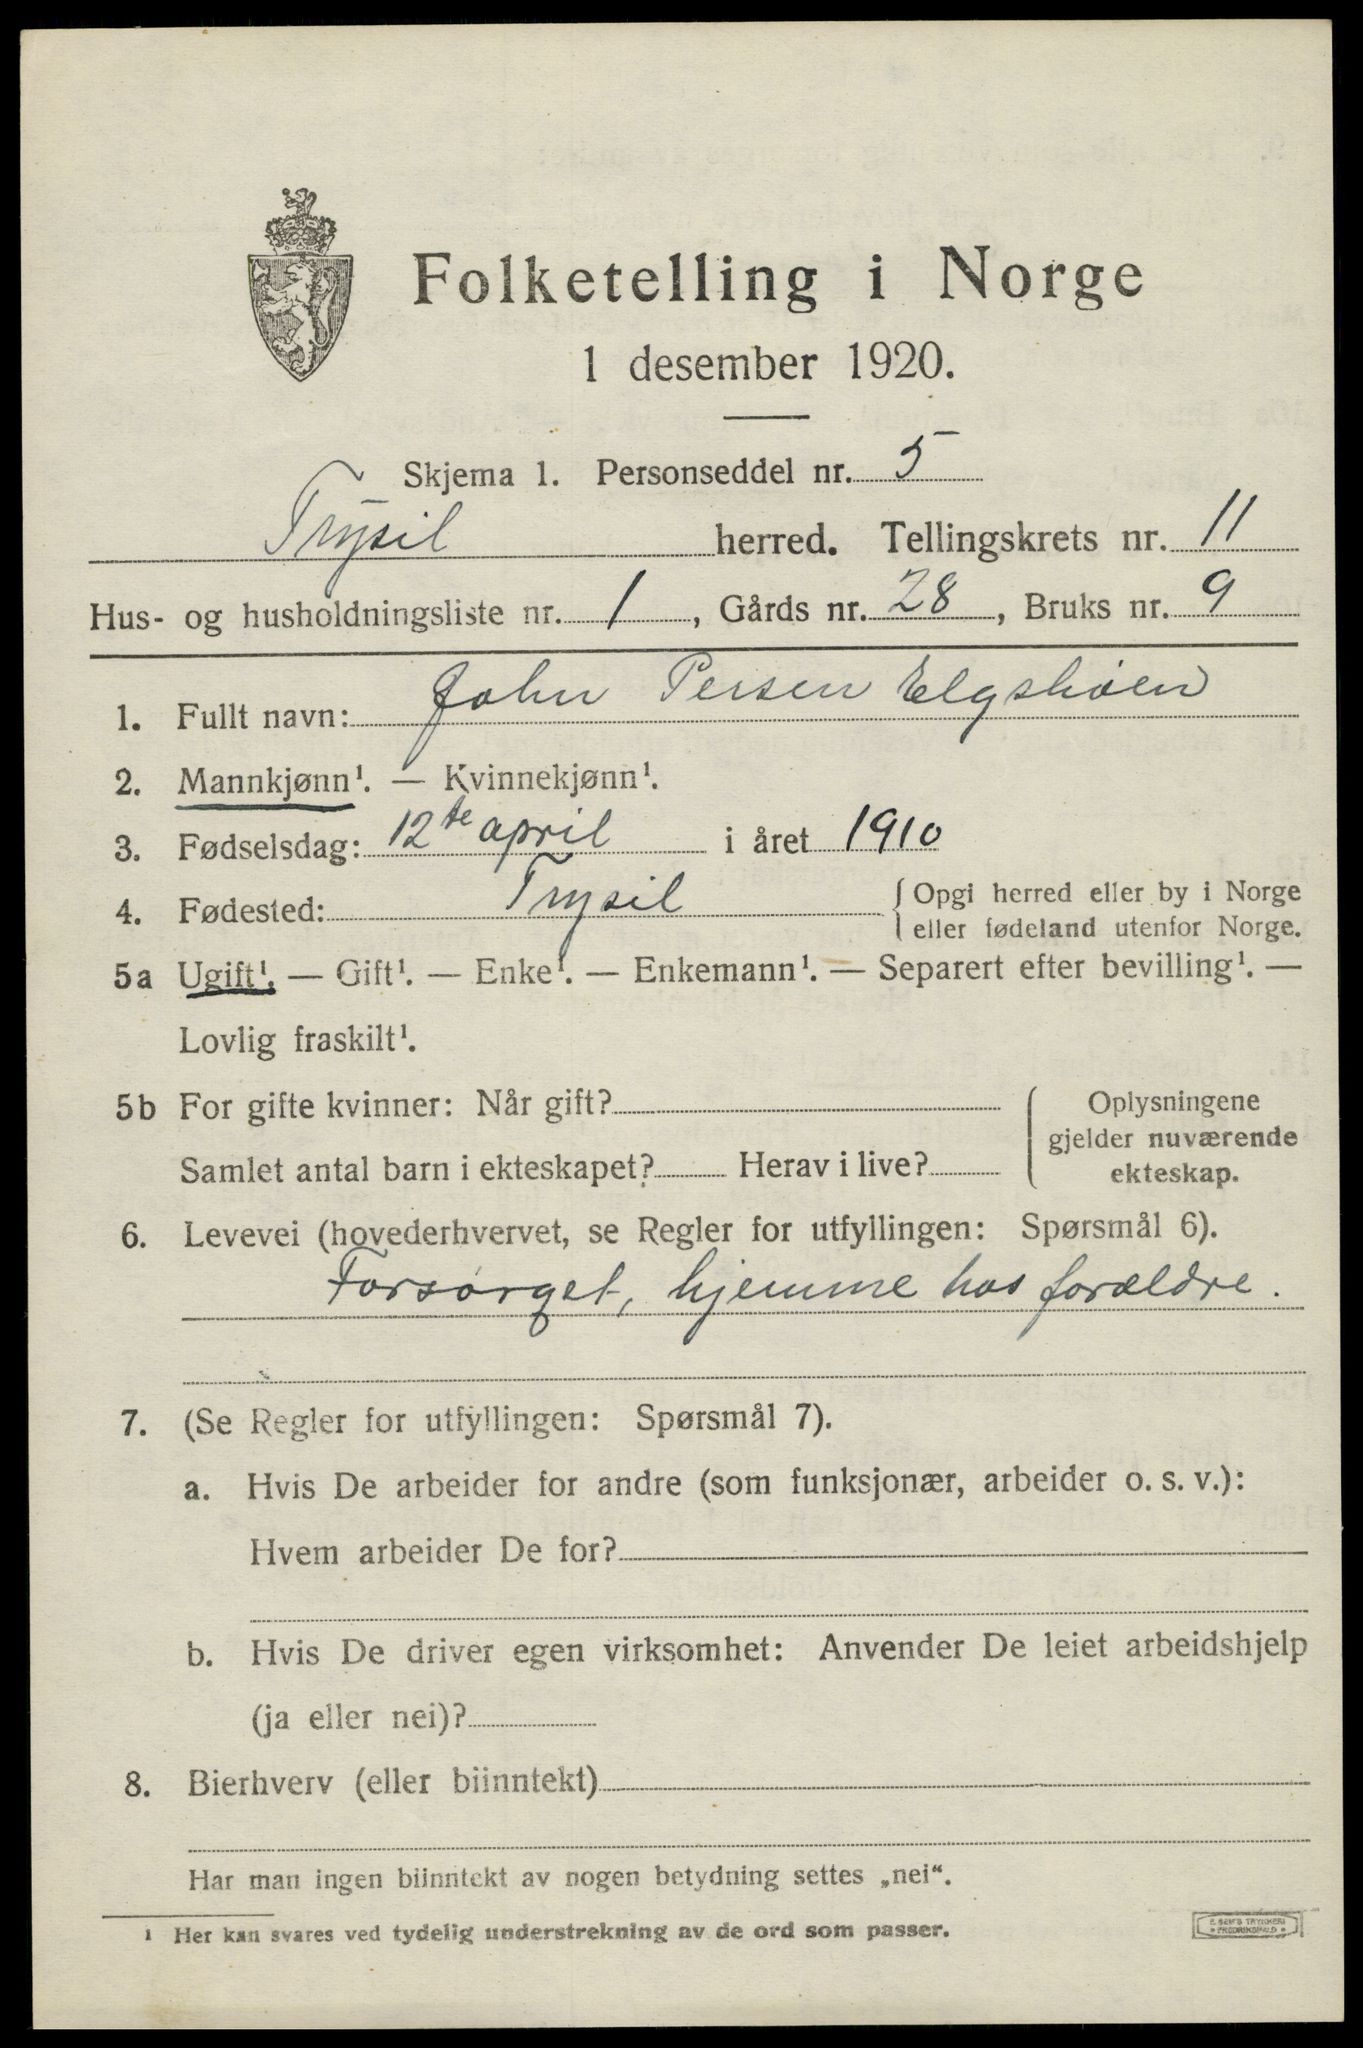 Folketelling i Norge
1 desember 1920.
Skjema 1. Personseddel nr. 5
Trysil herred. Tellingskrets nr. 11
Hus- og husholdningsliste nr. 1, Gårds nr. 28, Bruks nr. 9
1. Fullt navn: John Persen Elgshøen
2. Mannkjønn¹. — Kvinnekjønn¹.
3. Fødselsdag: 12te april i året 1910
4. Fødested: Trysil { Opgi herred eller by i Norge
eller fødeland utenfor Norge.
5a Ugift¹. — Gift¹. — Enke¹. — Enkemann¹. — Separert efter bevilling¹. —
Lovlig fraskilt¹.
5b For gifte kvinner: Når gift?
Samlet antal barn i ekteskapet? Herav i live?
Oplysningene
gjelder nuværende
ekteskap.
6. Levevei (hovederhvervet, se Regler for utfyllingen: Spørsmål 6).
Forsørget, hjemme hos forældre.
7. (Se Regler for utfyllingen: Spørsmål 7).
a. Hvis De arbeider for andre (som funksjonær, arbeider o. s. v.):
Hvem arbeider De for?
b. Hvis De driver egen virksomhet: Anvender De leiet arbeidshjelp
(ja eller nei)?
8. Bierhverv (eller biinntekt)
Har man ingen biinntekt av nogen betydning settes „nei“.
¹ Her kan svares ved tydelig understrekning av de ord som passer.
E. SEM'S TRYKKERI
FREDRIKSHALD